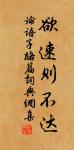 欲速则不达
论语子路篇词典网集